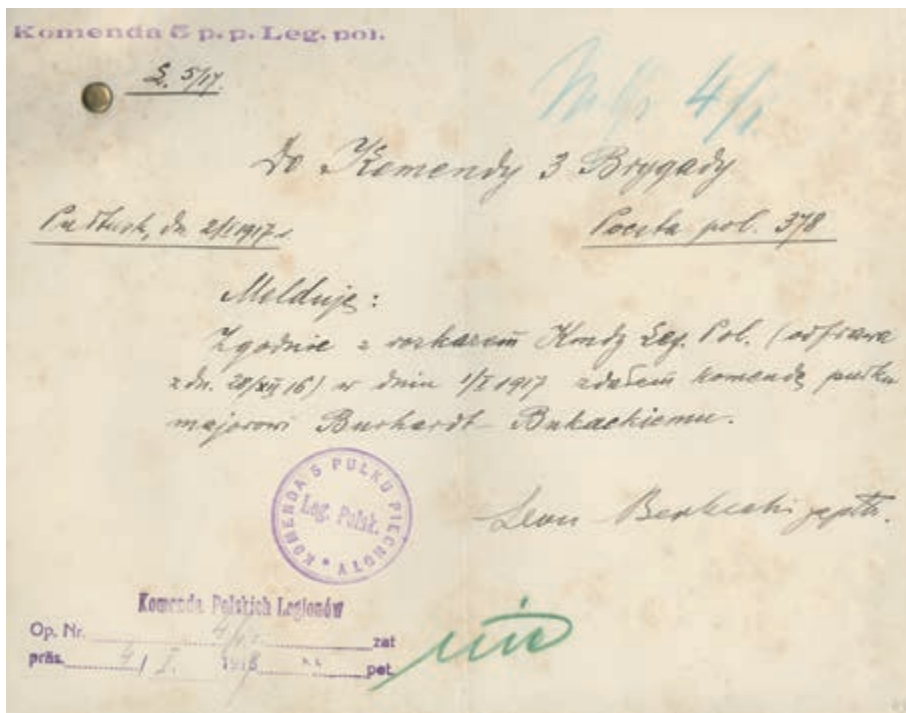 Komenda 5 p.p. Leg. pol.
L. 5/17.
4/I
Do Komendy 3 Brygady
Pułtusk, dn 2/I 1917 r
Poczta pol. 378
Melduję:
Zgodnie z rozkazem Kmdy Leg. Pol. (odprawa
z dn. 28/XII 16) w dniu 1/I 1917 zdałem komendę pułku
majorowi Burhardt-Bukackiemu.
Leon Berbecki ppłk.
KOMENDA 5 PUŁKU PIECHOTY
Leg. Polsk.
Komenda Polskich Legionów
Op. Nr. 4/I zał
präs. 4/I. 191 pet.